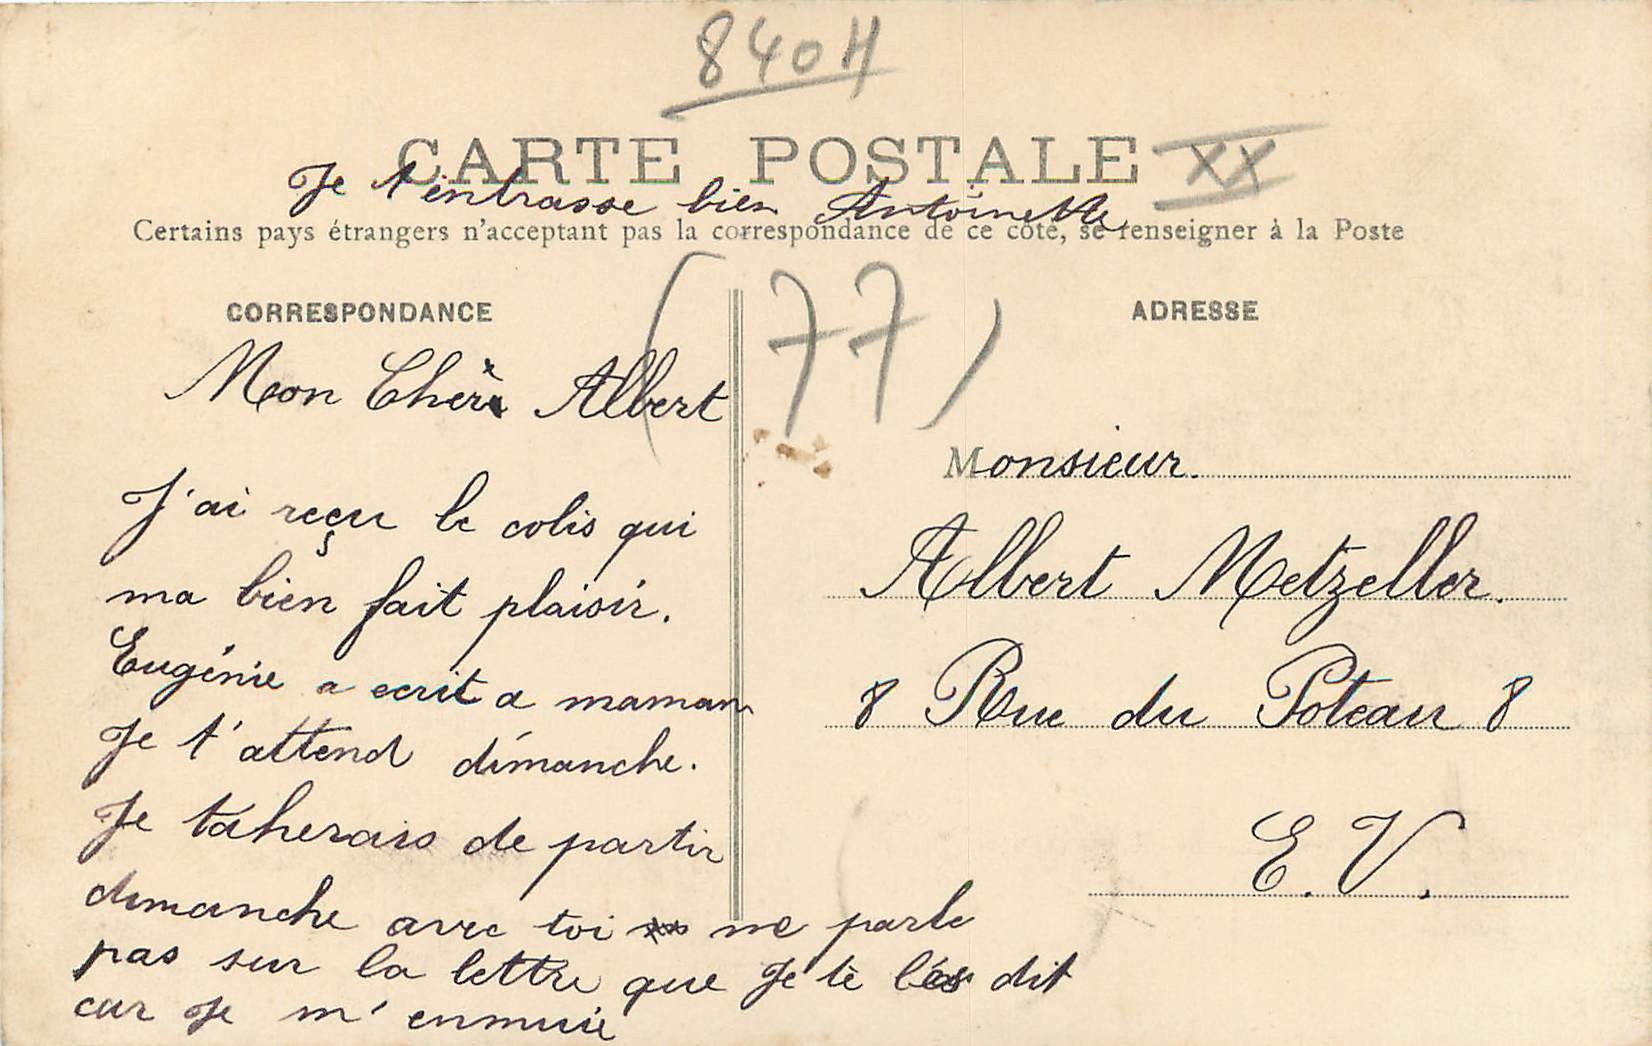 840H
CARTE POSTALE XX
Je t'embrasse bien Antoinette
Certains pays étrangers n'acceptant pas la correspondance de ce côté, se renseigner à la Poste
(77)
CORRESPONDANCE
Mon Chèri Albert
J'ai reçu le colis qui
ma bien fait plaisir.
Eugénie a ecrit a maman
Je t'attend dimanche.
Je taherais de partir
dimanche avec toi ne parle
pas sur la lettre que Je tè l'as dit
car Je m'ennuie
ADRESSE
Monsieur.
Albert Metzeller.
8 Rue du Poteau 8
E. V.